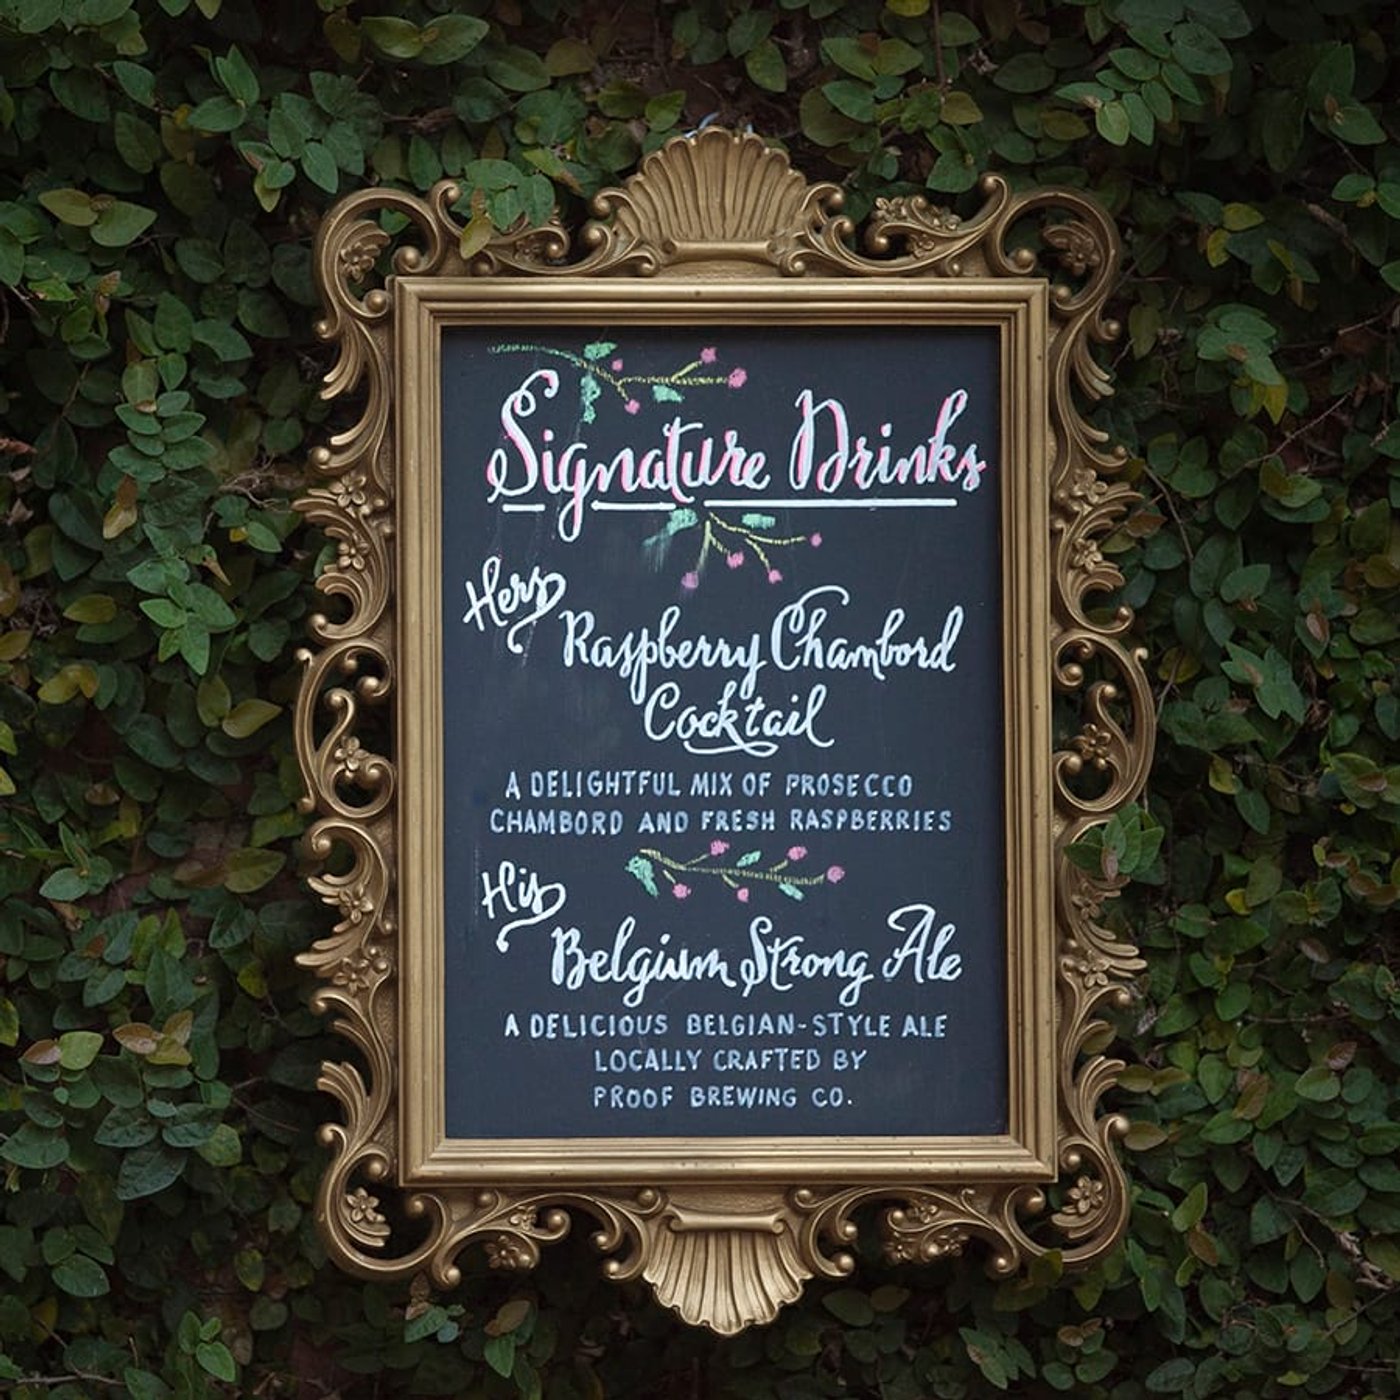 Signature Drinks
Hers
Raspberry Chambord
Cocktail
A DELIGHTFUL MIX OF PROSECCO
CHAMBORD AND FRESH RASPBERRIES
His
Belgium Strong Ale
A DELICIOUS BELGIAN-STYLE ALE
LOCALLY CRAFTED BY
PROOF BREWING CO.